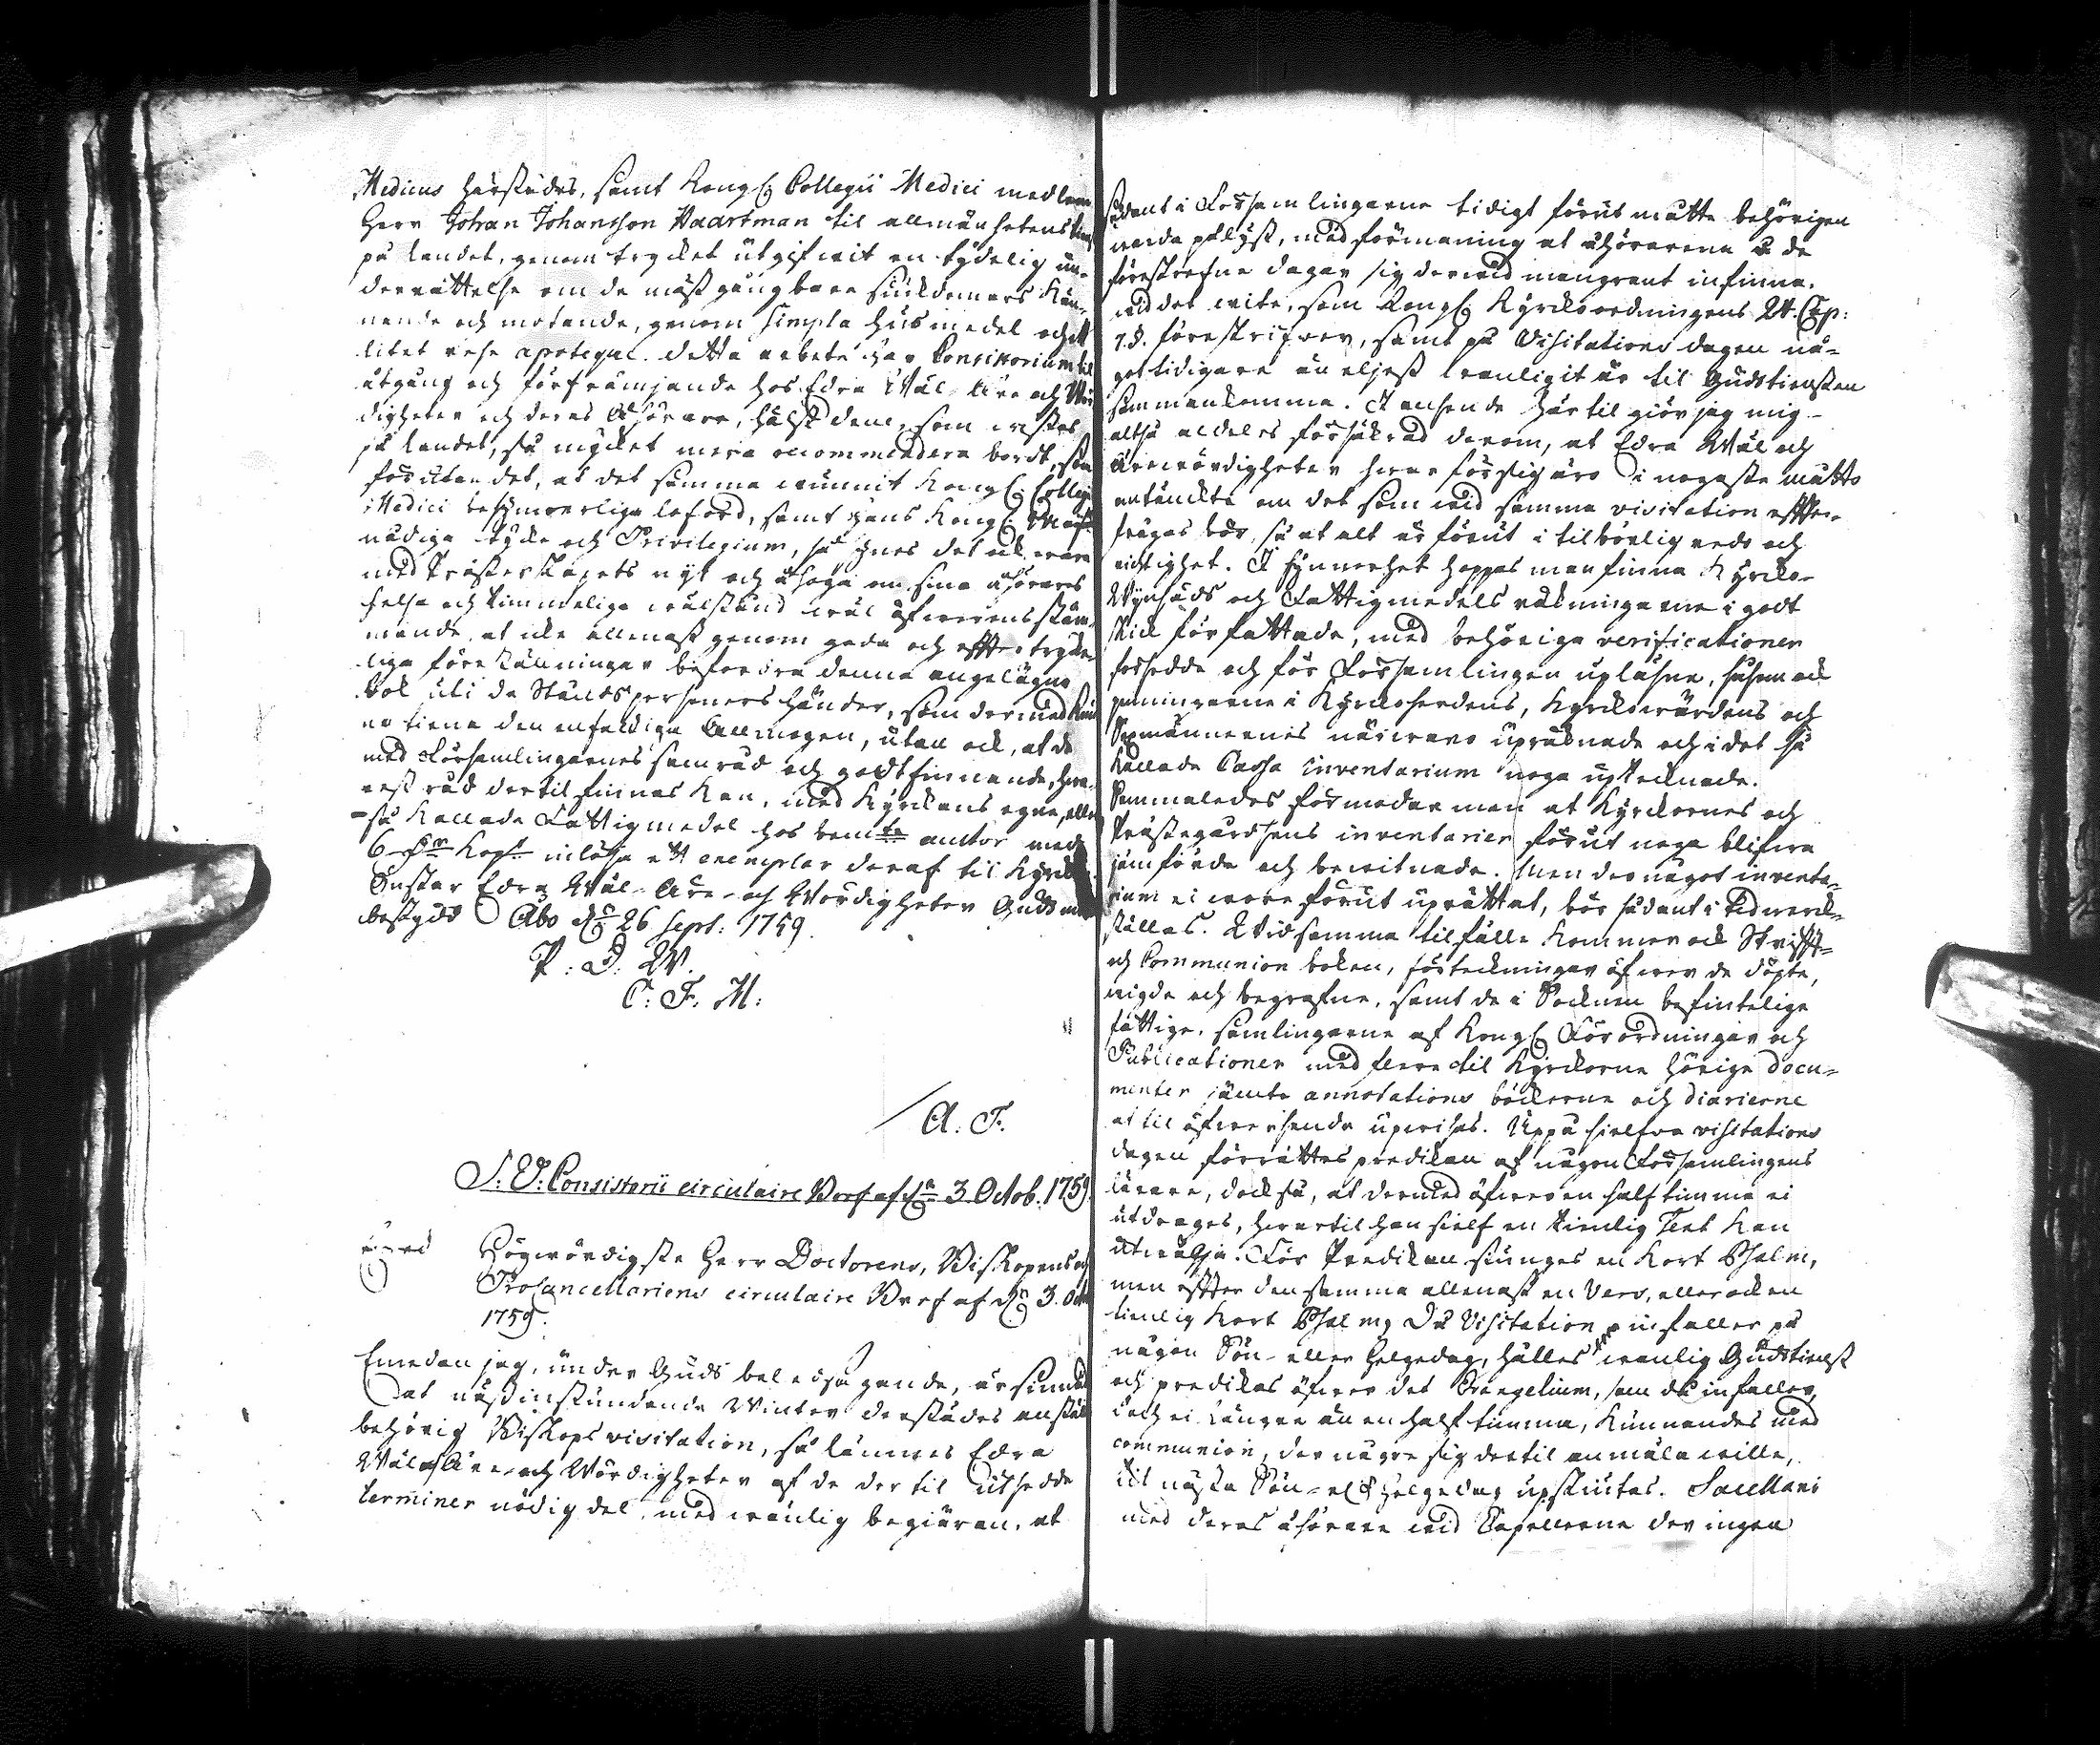 Medicus härstädes, samt Kongl. Collegii Medici medlem
Herr Johan Johansson Haartman til allmänhetens tienst
på landet, genom trycket utgifwit en tydelig un-
derrättelse om de mäst gångbara siukdomars kän-
nande och motande, genom simpla hus medel och ett
litet rese apotequé. Detta arbete har Consistorium til
afgång och förfrämjande hos Edra Wäl- Äre och Wör
digheter och deras Åhörare, hälst dem, som wistas
på landet, så mycket mera recommendera bordt, som
förutan det, at det samma wunnit Kongl. Collegii
Medici besynnerliga loford, samt Hans Kongl. Maijts
nådiga tycke och Privilegium, så synes det ock wara
med Prästerskapets nyt och åhoga om sina åhörares
helsa och timmeliga wälstånd wäl öfwerensstäm-
mande, at icke allenast genom goda och efftertrycke-
liga föreställningar befordra denna angelägna
bok uti de Ståndspersoners händer, som dermed kun
na tiena den enfaldiga Allmogen, utan ock, at de
med Församlingarnes samråd och godtfinnande, hwar-
est råd dertil finnas kan, med Kyrckans egne, eller
så kallade Fattigmedel hos bemte auctor med
6 dr Kopt inlösa ett exemplar deraf til Kyrckan
Önskar Edra Wäl- Äre- och Wördigheter Guds nåd
beskydd Åbo d. 26 Sept: 1759.
P: D: W.
C: F: M:
A. F.
S. V. Consistorii circulaire Bref af d. 3 Octob. 1759.
Högwördigste Herr Doctorens, Biskopens och
Procancellariens circulaire Bref af d. 3. Oct
1759.
Emedan jag, under Guds beledsagande, är sinnad
at näst instundande Winter derstädes anställa
behörig Biskops visitation, så lämnes Edra
Wäl- Äre- och Wördigheter af de der til utsedde
terminer nödig del, med wänlig begiäran, at
sådant i Församlingarne tidigt förut måtte behörigen
warda pålyst, med förmaning at åhörarena å de
föreskrefne dagar sig derwid mangrant infinna.
wid det wite, som Kongl. Kyrckoordningens 24. Cap:
7. §. föreskrifwer, samt på Visitations dagen nå-
got tidigare än eljest wanligit är til Gudstiensten
sammankomma. I anseende här til giör jag mig
altså aldeles försäkrad derom, at Edra Wäl och
Ärewördigheter hwar för sig äro i nogaste måtto
omtänckte om det som wid samma visitation effter-
frågas bör, så at alt är förut i tilbörlig redo och
richtighet. I synnerhet hoppas man finna Kyrcko-
Wijnsäds och Fattigmedels räkningarne i godt
skick författade, med behöriga verificationer
försedde och för Församlingen upläsne, såsom ock
penningarne i Kyrckoherdens, Kyrckowärdens och
Sexmännernes närwaro upräknade och i det så
kallade Cassa inventarium noga uptecknade.
Sammaledes förmodar man at Kyrckornes och
Prästegårdsens inventarier förut noga blifwa
jämförde och bewitnade. Men der något inventa-
rium ei wore förut uprättat, bör sådant i tid werck-
ställas. Wid samma tilfälle kommer ock Skrifft-
och Communion boken, förteckningar öfwer de döpte,
wigde och begrafne, samt de i Socknen befintelige
fattige, samlingarne af Kongl. Förordningar och
Publicationer med flere til Kyrckorne hörige docu-
menter jämte annotations böckerne och diarierne
at til öfwerseende upwisas. Uppå sielfva visitations
dagen förrättas predikan af någon Församlingens
lärare, dock så, at dermed öfwer en half timma ei
utdrages, hwartil han sielf en tienlig Text kan
utwälja. För Predikan siunges en kort Psalm,
men effter densamma allenast en Vers, eller ock en
tienlig kort Psalm; Då Visitation infaller på
någon Sön- eller Helgedag, hålles wanlig Gudstienst
och predikas öfwer det Evangelium, som då infaller,
dock ei längre än en half timma, kunnandes med
communion, der någre sig dertil anmäla wille,
til nästa Sön- eller Helgedag upskiutas. Sacellani
med deras åhörare wid Capellerne der ingen